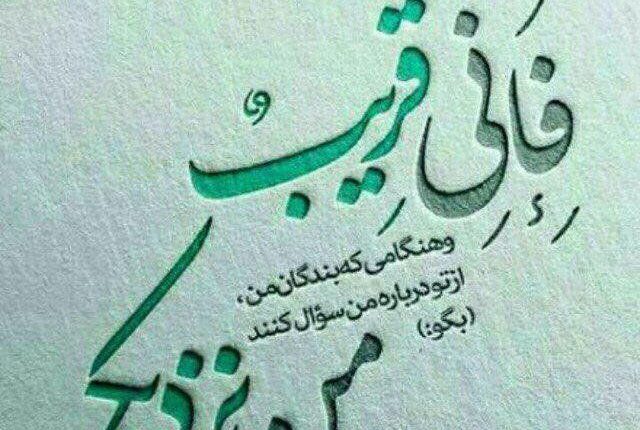 فَإِنِّی قَرِیبٌ
وهنگامی که بندگان من،
از تو درباره من سؤال کنند
(بگو:)
من نزدیکـ